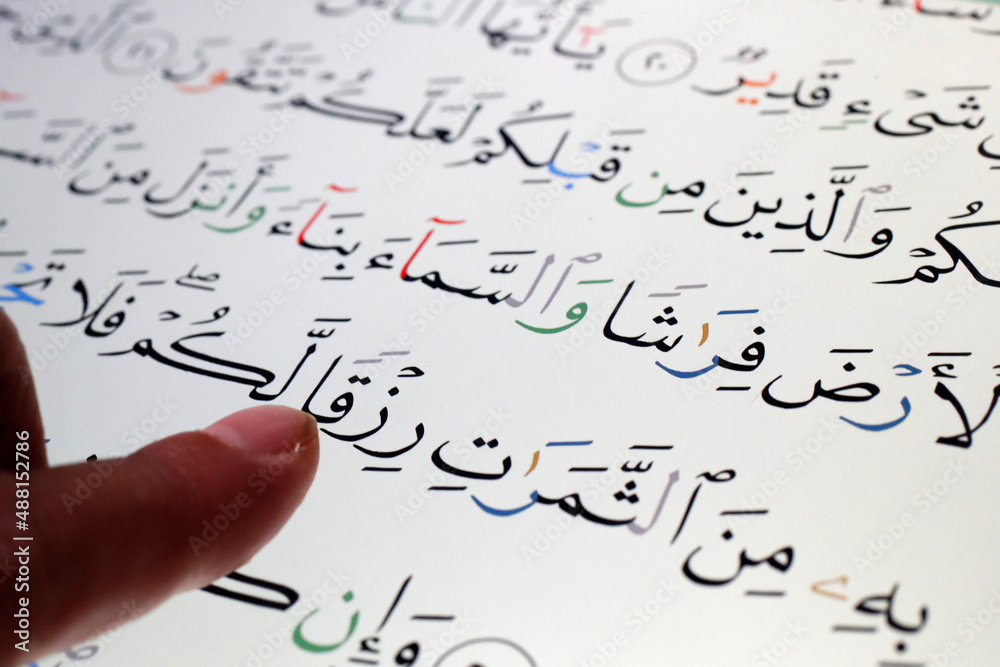 شَىْءٍ قَدِيرٌ ٢٠ يَٰٓأَيُّهَا ٱلنَّاسُ
كُمْ وَٱلَّذِينَ مِن قَبْلِكُمْ لَعَلَّكُمْ تَتَّقُونَ ٢١ ٱلَّذِى
لْأَرْضَ فِرَٰشًا وَٱلسَّمَآءَ بِنَآءً وَأَنزَلَ مِنَ
بِهِۦ مِنَ ٱلثَّمَرَٰتِ رِزْقًا لَّكُمْ ۖ فَلَا
وَإِن
Adobe Stock | #488152786